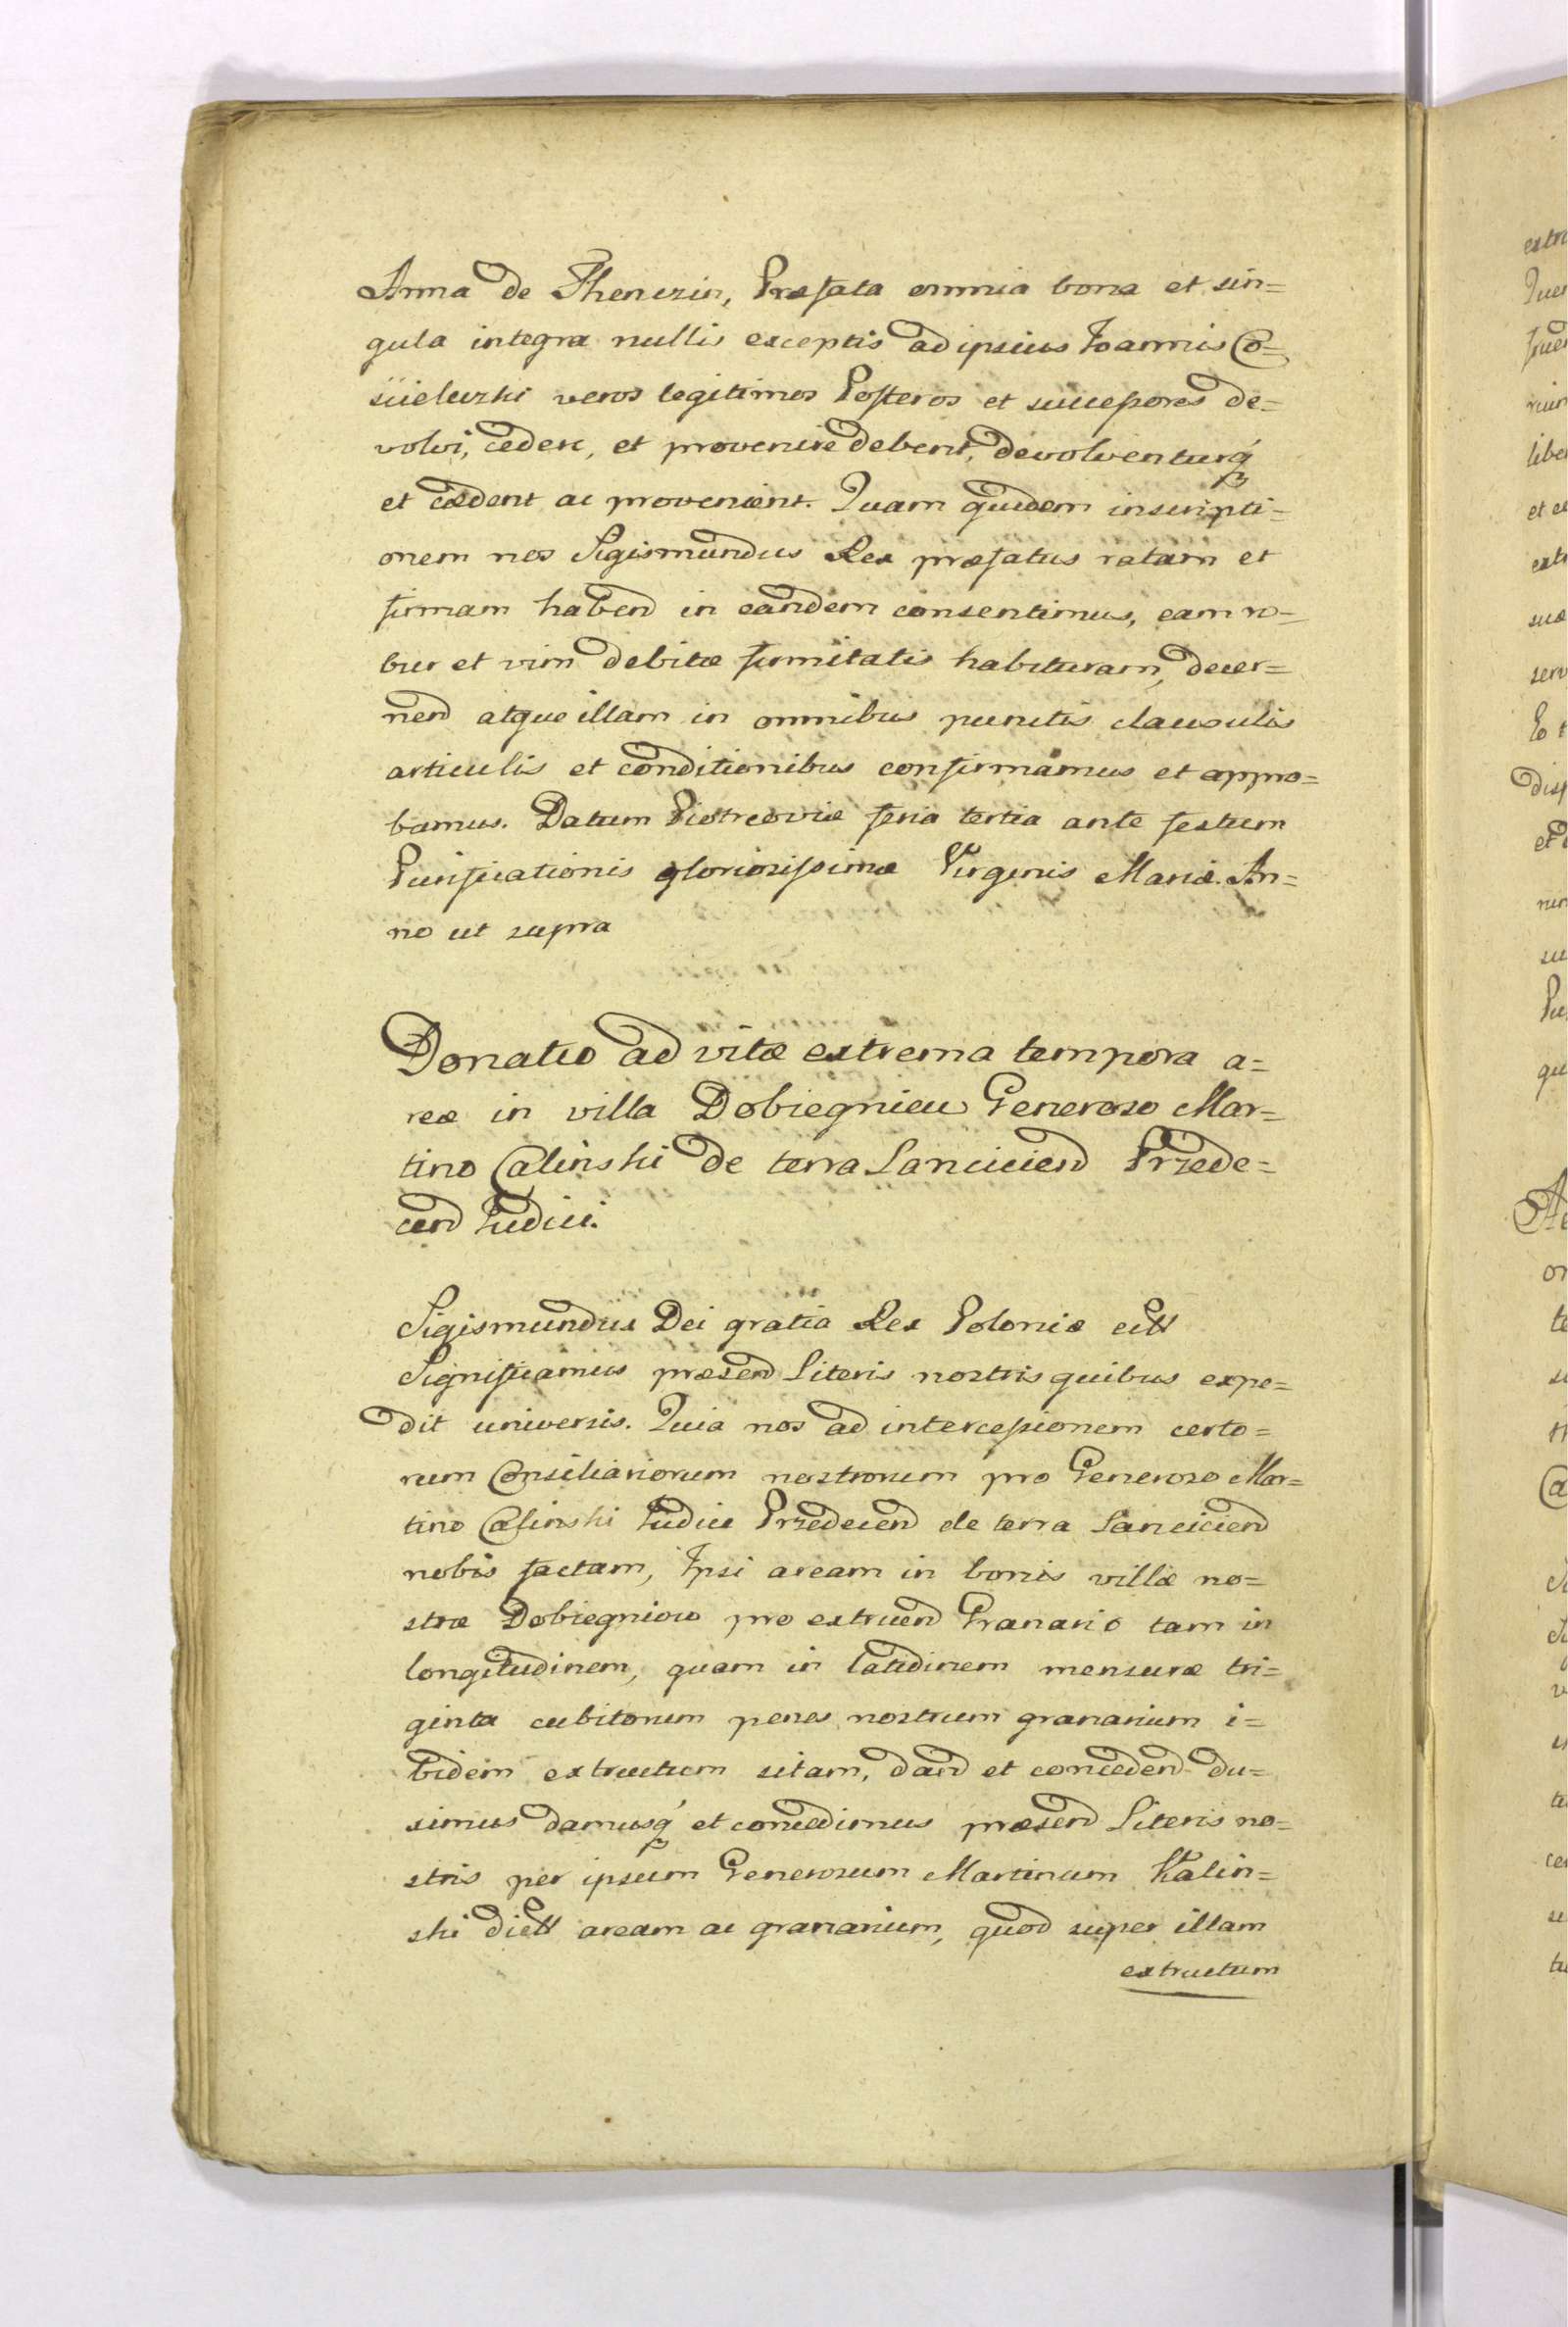 Anna de Thenczin, Præfata omnia bona et sin=
gula integra nullis exceptis ad ipsius Joannis Co=
scieleczki veros legitimos Posteros et successores de=
volvi, cedere, et provenire debent, devolventurq́
et cædent ac provenient. Quam quidem inscripti=
onem nos Sigismundus Rex præfatus ratam et
firmam haben in eandem consentimus, eam ro=
bur et vim debitæ firmitatis habituram, decer=
nen atque illam in omnibus punctis clausulis
articulis et conditionibus confirmamus et appro=
bamus. Datum Piotrcoviæ feria tertia ante festum
Purificationis gloriosissimæ Virginis Mariæ. An=
no ut supra
Donatio ad vitæ extrema tempora a=
reæ in villa Dobiegniew Generoso Mar=
tino Calinski de terra Lancicien Przede=
cen Judici.
Sigismundus Dei gratia Rex Poloniæ ett
Significamus præsen Literis nostris quibus expe=
dit universis. Quia nos ad intercessionem certo=
rum Consiliariorum nostrorum pro Generoso Mar=
tino Calinski Judice Przedecen de terra Lancicien
nobis factam, Ipsi aream in bonis villæ no=
stræ Dobiegniow pro extruen Granario tam in
longitudinem, quam in latidinem mensuræ tri=
ginta cubitorum penes nostrum granarium i=
bidem extructum sitam, dan et conceden du=
ximus damusq́ et concedimus præsen Literis no=
stris per ipsum Generosum Martinum Kalin=
ski dictt aream ac granarium, quod super illam
extructum